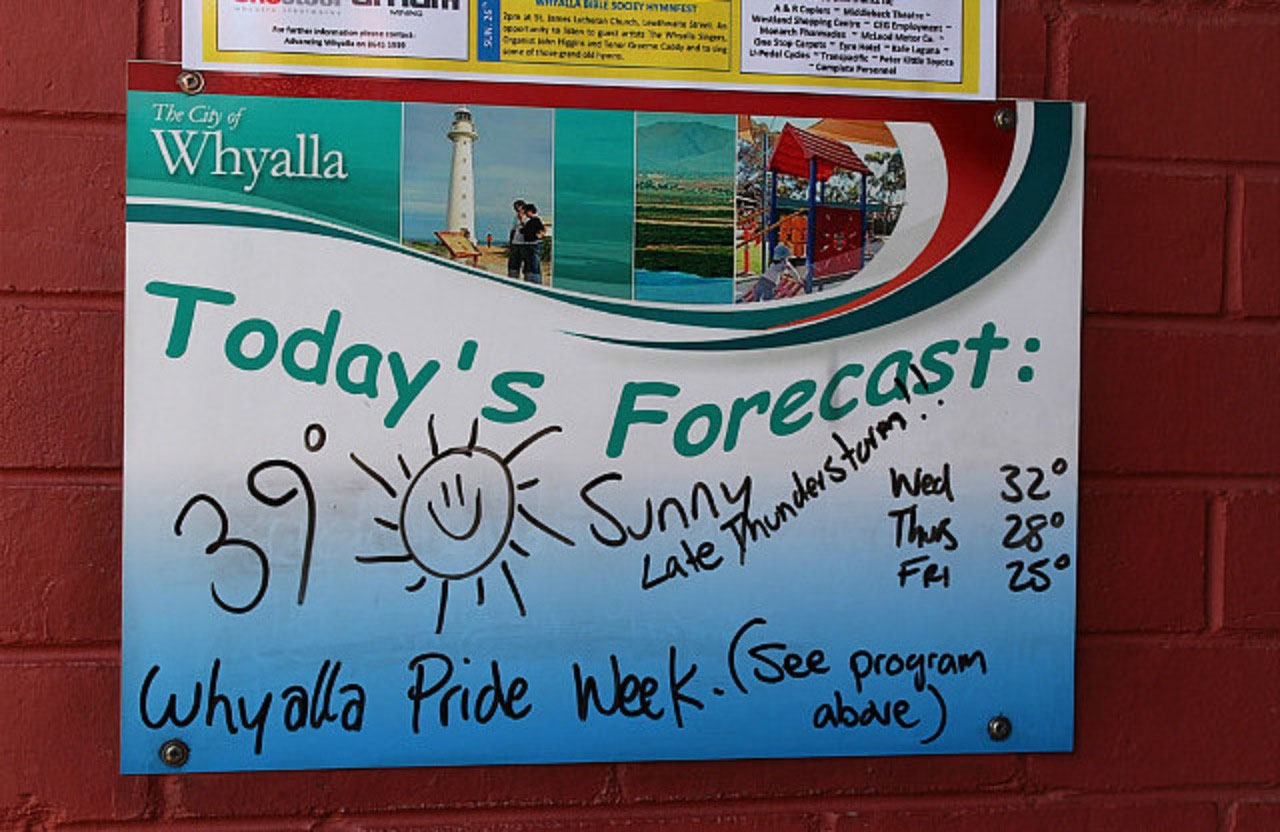 onesteel
arrium
MINING
For further information please contact:
Advancing Whyalla on 8645 1999
SUN. 26th
WHYALLA BIBLE SOCIETY HYMNFEST
2pm at St. James Lutheran Church, Lowthwaite Street. An
opportunity to listen to guest artists The Whyalla Singers,
Organist John Higgins and Tenor Graeme Caddy and to sing
some of those grand old hymns.
A & R Copiers ~ Middleback Theatre ~
Westland Shopping Centre ~ CEG Employment
~ Monarch Pharmacies ~ McLeod Motor Co. ~
One Stop Carpets ~ Eyre Hotel ~ Kafe Laguna ~
U-Pedal Cycles ~ Transpacific ~ Peter Kittle Toyota
~ Complete Personnel
The City of
Whyalla
Today's Forecast:
39° Sunny
Late Thunderstorm!!
Wed 32°
Thurs 28°
Fri 25°
Whyalla Pride Week. (See program
above)